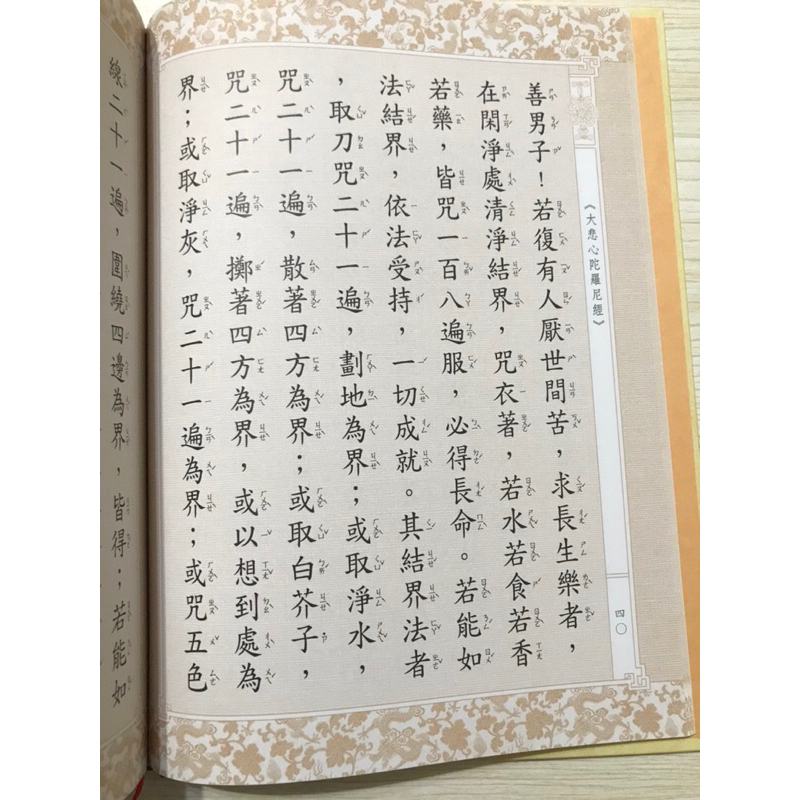 《大悲心陀羅尼經》
四〇
善男子！若復有人厭世間苦，求長生樂者，
在閑淨處清淨結界，咒衣著，若水若食若香
若藥，皆咒一百八遍服，必得長命。若能如
法結界，依法受持，一切成就。其結界法者
，取刀咒二十一遍，劃地為界；或取淨水，
咒二十一遍，散著四方為界；或取白芥子，
咒二十一遍，擲著四方為界，或以想到處為
界；或取淨灰，咒二十一遍為界；或咒五色
線二十一遍，圍繞四邊為界，皆得；若能如